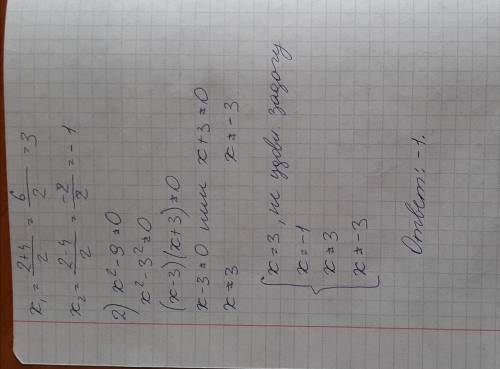 x₁ = 2+4/2 = 6/2 = 3
x₂ = 2-4/2 = -2/2 = -1
2) x² - 9 ≠ 0
x² - 3² ≠ 0
(x-3)(x+3) ≠ 0
x-3 ≠ 0 или x+3 ≠ 0
x ≠ 3 x ≠ -3
x = 3, не удовл задачу
x = -1
x ≠ 3
x ≠ -3
Ответ: -1.